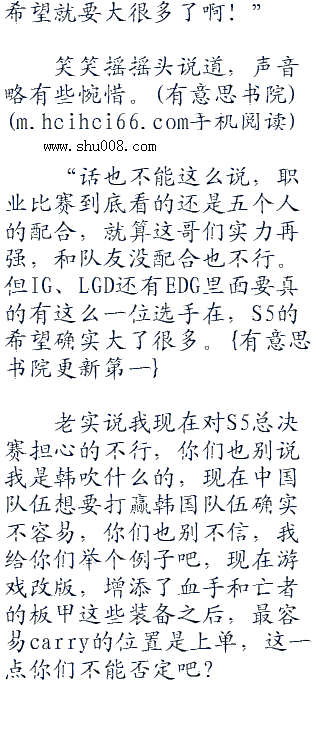 希望就要大很多了啊！”
笑笑摇摇头说道，声音
略有些惋惜。(有意思书院)
(m.hcihci66.com手机阅读)
www.shu008.com
“话也不能这么说，职
业比赛到底看的还是五个人
的配合，就算这哥们实力再
强，和队友没配合也不行。
但IG、LGD还有EDG里面要真
的有这么一位选手在，S5的
希望确实大了很多。{有意思
书院更新第一}
老实说我现在对S5总决
赛担心的不行，你们也别说
我是韩吹什么的，现在中国
队伍想要打赢韩国队伍确实
不容易，你们也别不信，我
给你们举个例子吧，现在游
戏改版，增添了血手和亡者
的板甲这些装备之后，最容
易carry的位置是上单，这一
点你们不能否定吧？